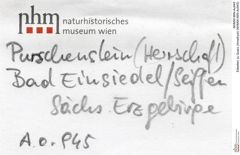 nhm
naturhistorisches
museum wien
Purschenstein (Herrschaft)
Bad Einsiedel/Seiffen
Sächs. Erzgebirge
A.o. 945